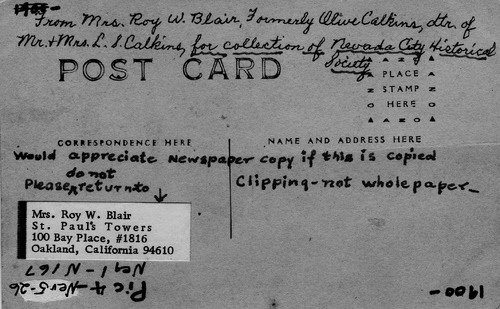 1985-
From Mrs. Roy W. Blair, Formerly Olive Calkins, dtr. of
Mr. & Mrs. L. S. Calkins, for collection of Nevada City Historical
Society
POST CARD
AZO
PLACE
STAMP
HERE
AZO
CORRESPONDENCE HERE
NAME AND ADDRESS HERE
Would appreciate Newspaper copy if this is copied
do not
Please return to
Clipping - not whole paper-
Mrs. Roy W. Blair
St. Paul's Towers
100 Bay Place, #1816
Oakland, California 94610
Pic 4 - Nev 5-26
Neg 1 - N 167
1900-